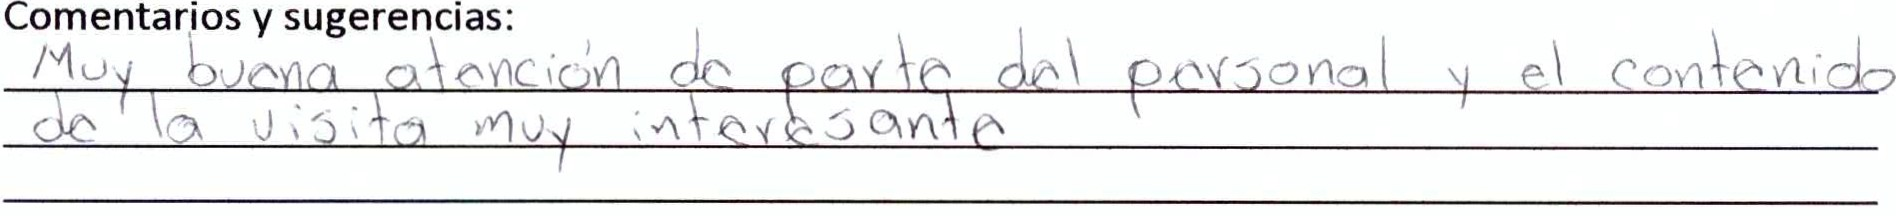 Comentarios y sugerencias:
Muy buena atención de parte del personal y el contenido
de la visita muy interesante